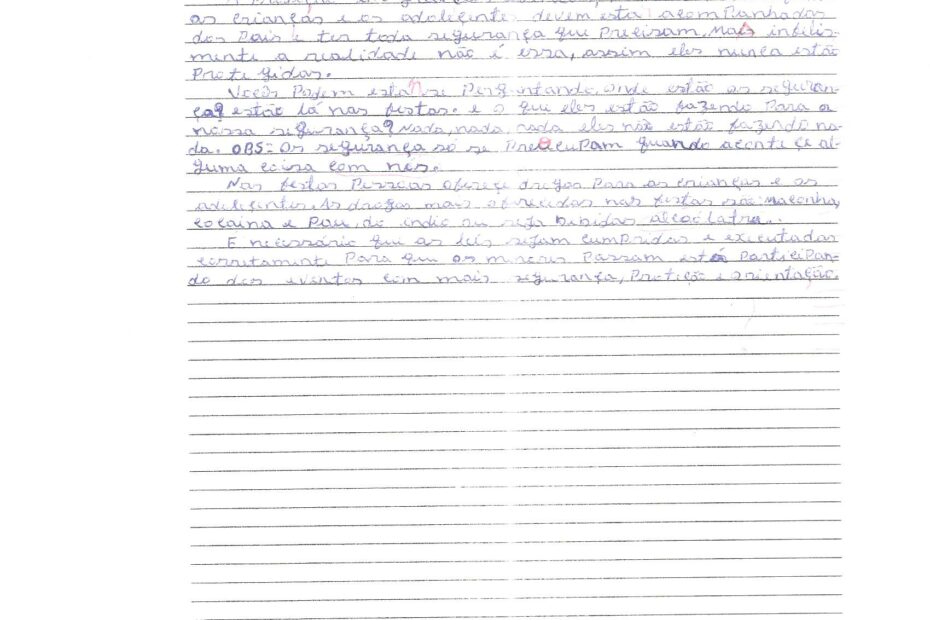 as crianças e os adolecentes devem esta acompanhadas
dos Pais e ter toda segurança que Precisam, mais infelis-
mente a realidade não é essa, assim eles nunca estão
Protegidos.
Vocês Podem esta se Perguntando, onde estão os seguran-
ça? estão lá nas festas. e o que eles estão fazendo Para a
nossa segurança? Nada, nada, nada eles não estão fazendo na-
da. OBS: Os segurança só se PreocuPam quando aconteçe al-
guma coisa com nós.
Nas festas Pessoas ofereçe drogas Para as crianças e os
adolecentes. As drogas mais oferecidas nas festas são: maconha,
cocaina e Pau, do indio ou seja bebidas alcoolatra..
E necessário que as leis sejam cumpridas e executadas
corrutamente Para que os menores Passam está ParticiPan-
do dos eventos com mais segurança, Proteção e orientação.